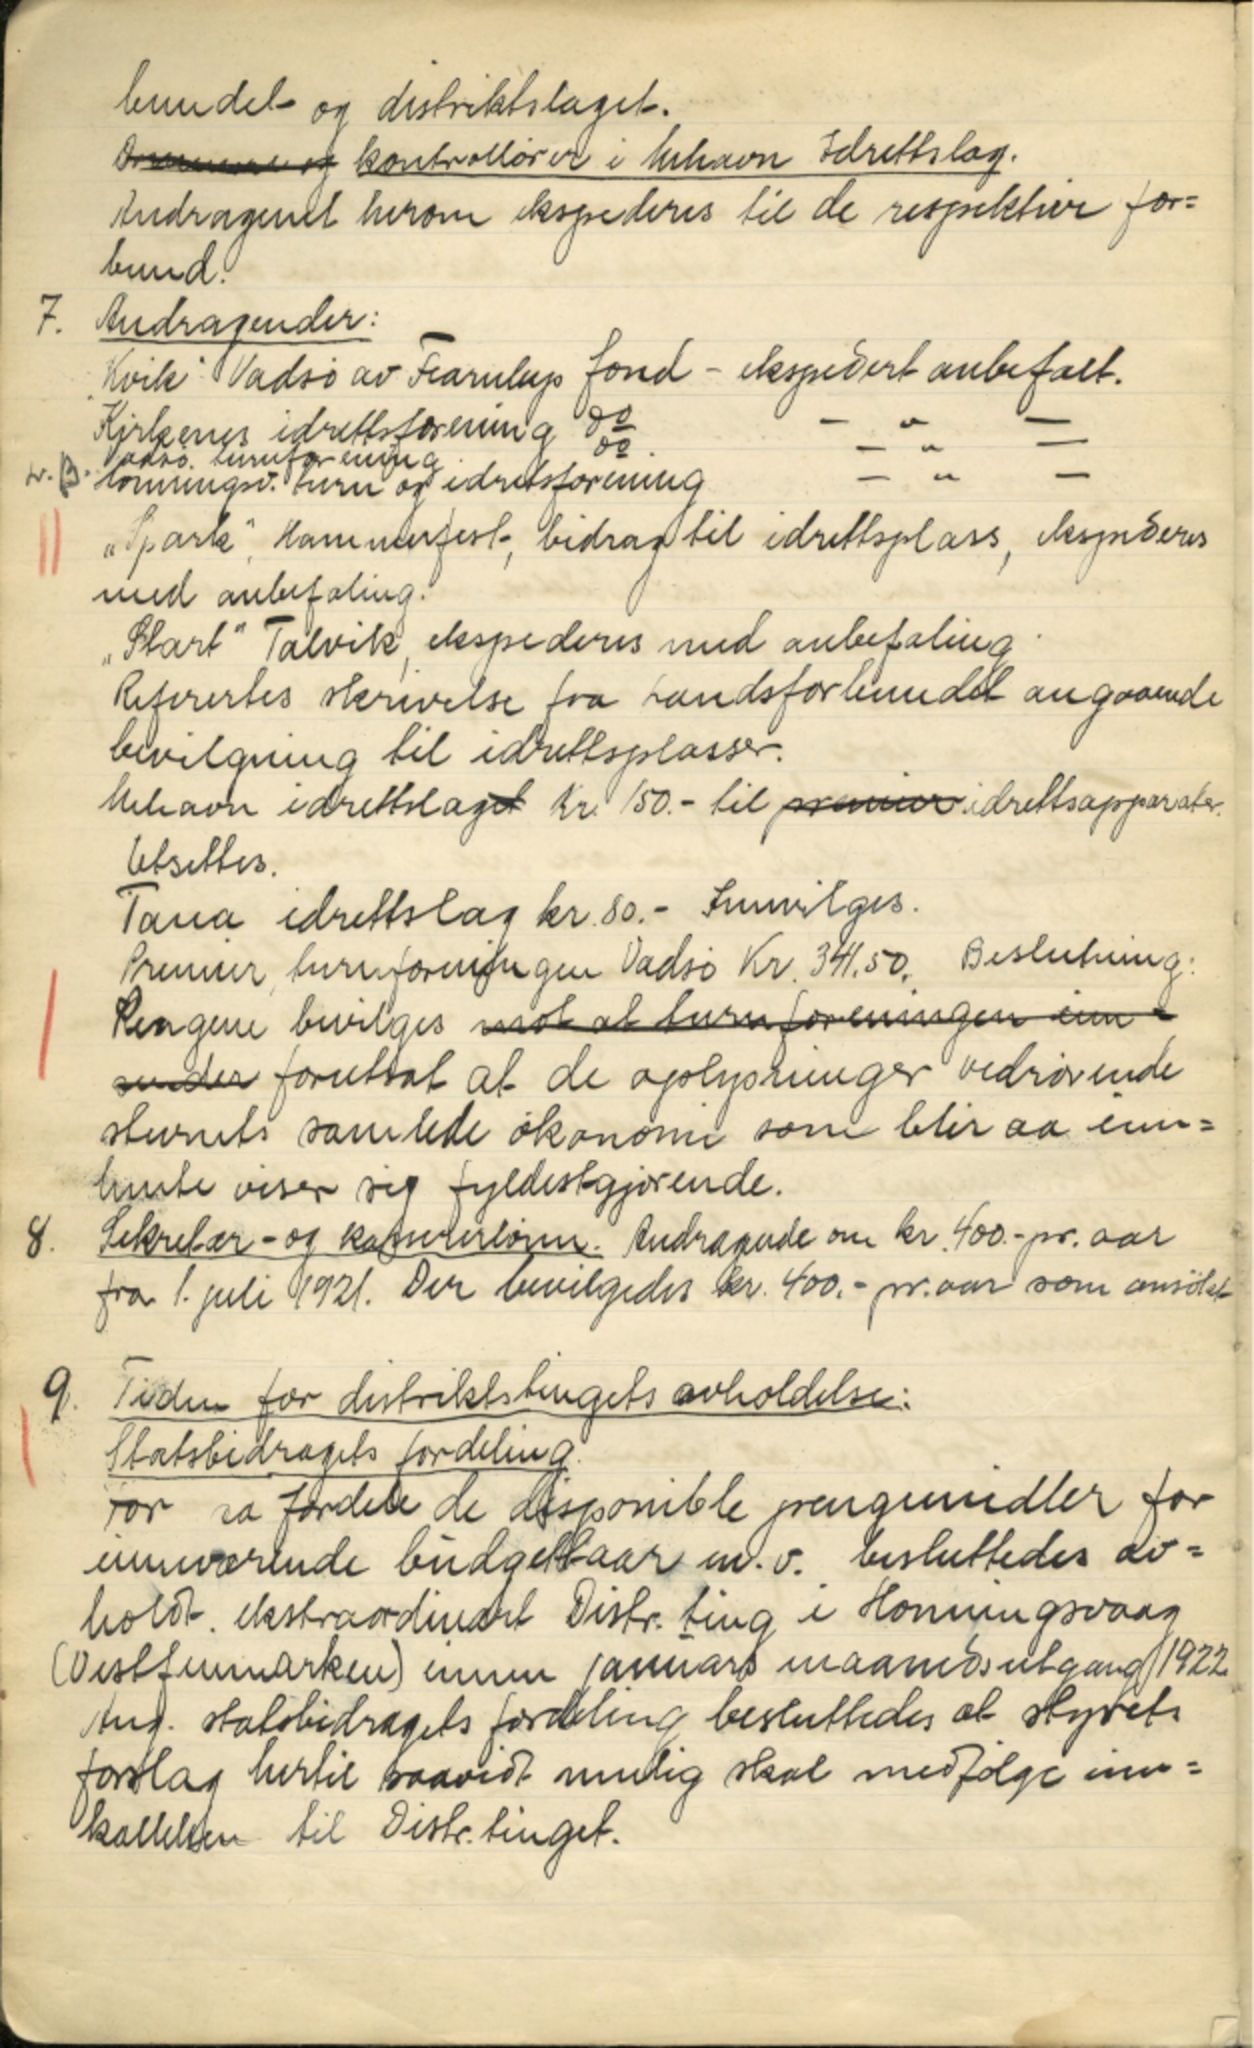 bundet og distriktslaget.
og kontrollører i Mehavn Idrettslag.
Andragenet herom ekspederes til de respektive for=
bund.
7. Andragender:
"Kvik" Vadsø av Fearnleys fond - ekspedert anbefalt.
Kirkenes idrettsforening do — " —
Vadsø turnforening do. — " —
Honningsv. turn og idretsforening — " —
"Spark", Hammerfest, bidrag til idrettsplass, ekspederes
med anbefaling.
"Start" Talvik, ekspederes med anbefaling.
Refertes skrivelse fra Landsforbundet angaaende
bevilgning til idrettsplasser.
Mehavn idrettslaget Kr. 150.- til premier idrettsapparater.
Utsettes.
Tana idrettslag kr. 80.- Innvilges.
Premier, turnforeningen Vadsö Kr. 341.50. Beslutning:
Pengene bevilges mot at turnforeningen inn=
sender forutsat at de oplysninger vedrörende
stevnets samlede ökonomi som blir aa inn=
hente viser sig fyldestgjörende.
8. Sekretær- og kassererlönn. Andragende om kr. 400.- pr. aar
fra 1. juli 1921. Der bevilgedes kr. 400.- pr. aar som ansökt
9. Tiden for distriktstingets avholdelse:
Statsbidragets fordeling.
For aa fordele de disponible pengemidler for
inneværende budgettaar m. v. besluttedes av=
holdt ekstraordinært Distr. ting i Honningsvaag
(Vestfinmarken) innen januars maaneds utgang 1922.
Ang. statsbidragets fordeling besluttedes at styrets
forslag hertil saavidt mulig skal medfölge inn=
kallelsen til Distr. tinget.